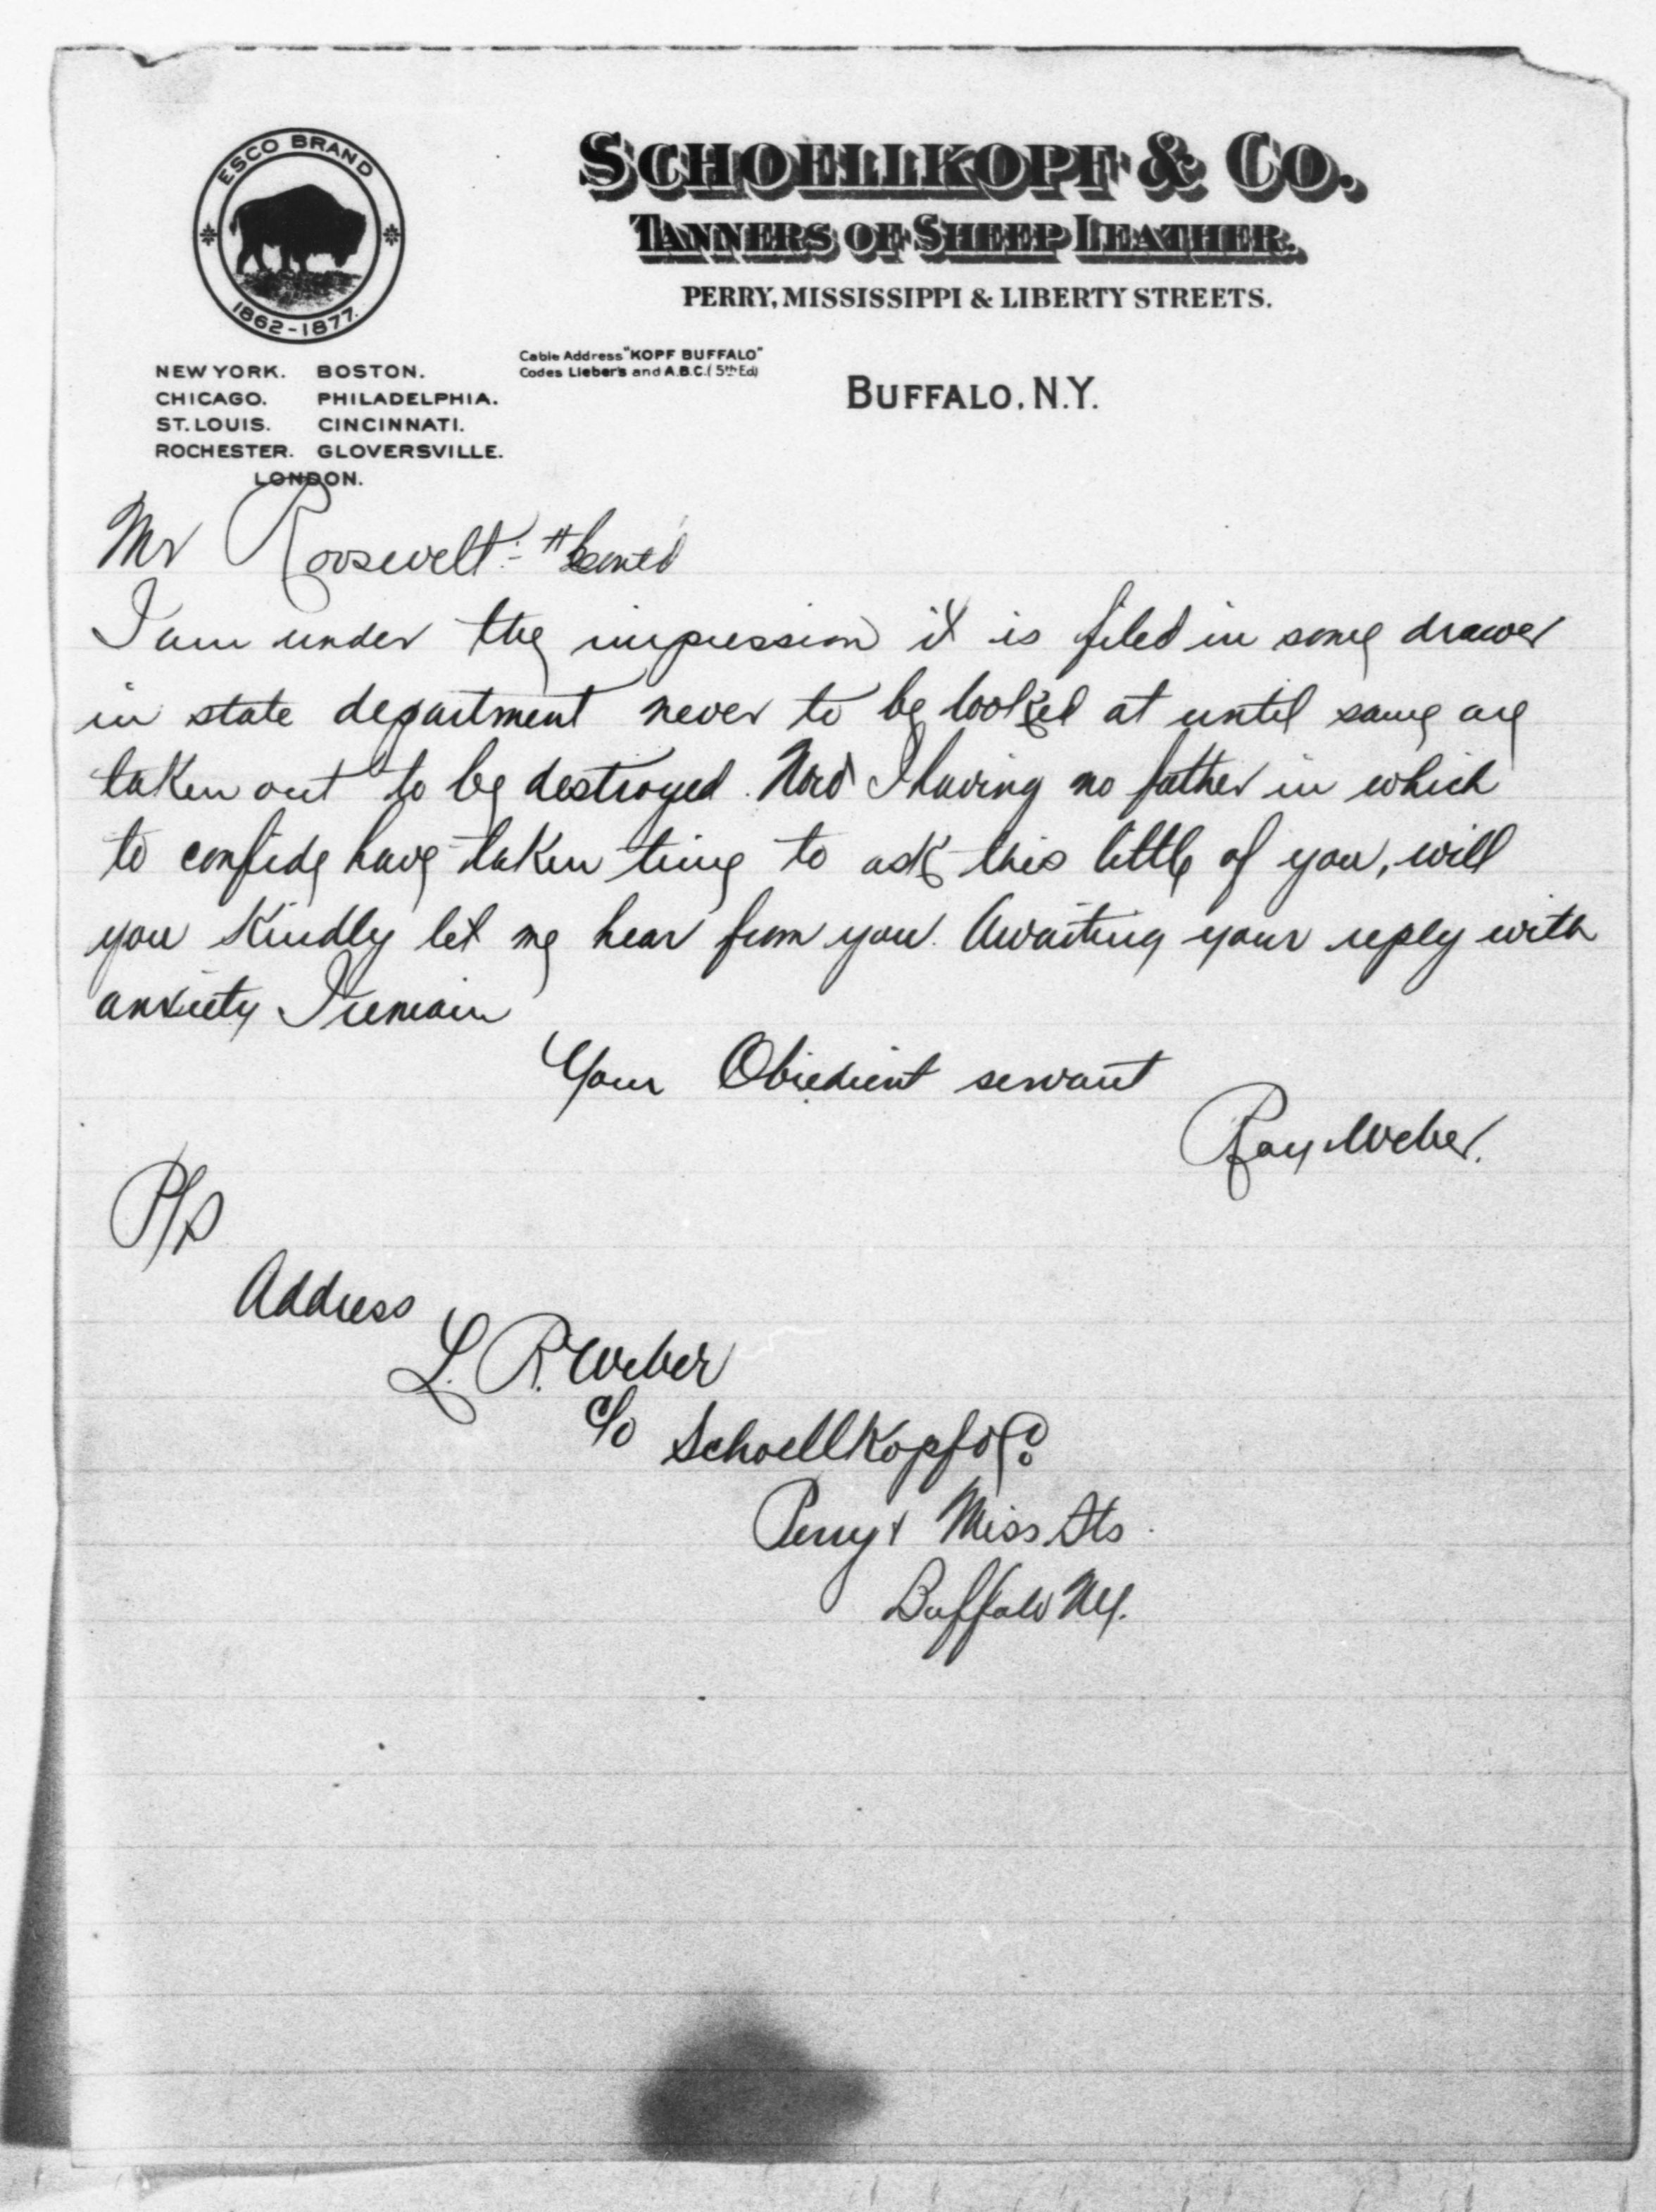 ESCO BRAND
1862-1877.
SCHOELLKOPF & CO.
TANNERS OF SHEEP LEATHER.
PERRY, MISSISSIPPI & LIBERTY STREETS.
Cable Address "KOPF BUFFALO"
Codes Lieber's and A.B.C. (5th Ed)
NEW YORK. BOSTON.
CHICAGO. PHILADELPHIA.
ST. LOUIS. CINCINNATI.
ROCHESTER. GLOVERSVILLE.
LONDON.
BUFFALO, N.Y.
Mr Roosevelt:-
I am under the impression it is filed in some drawer
in state department never to be looked at until same are
taken out to be destroyed. Now I having no father in which
to confide have taken time to ask this little of you, will
you kindly let me hear from you. Awaiting your reply with
anxiety I remain
Your Obiedient servant
Ray Weber.
P/S
Address
L. R. Weber
c/o Schoellkopf & Co
Perry & Miss Sts.
Buffalo NY.